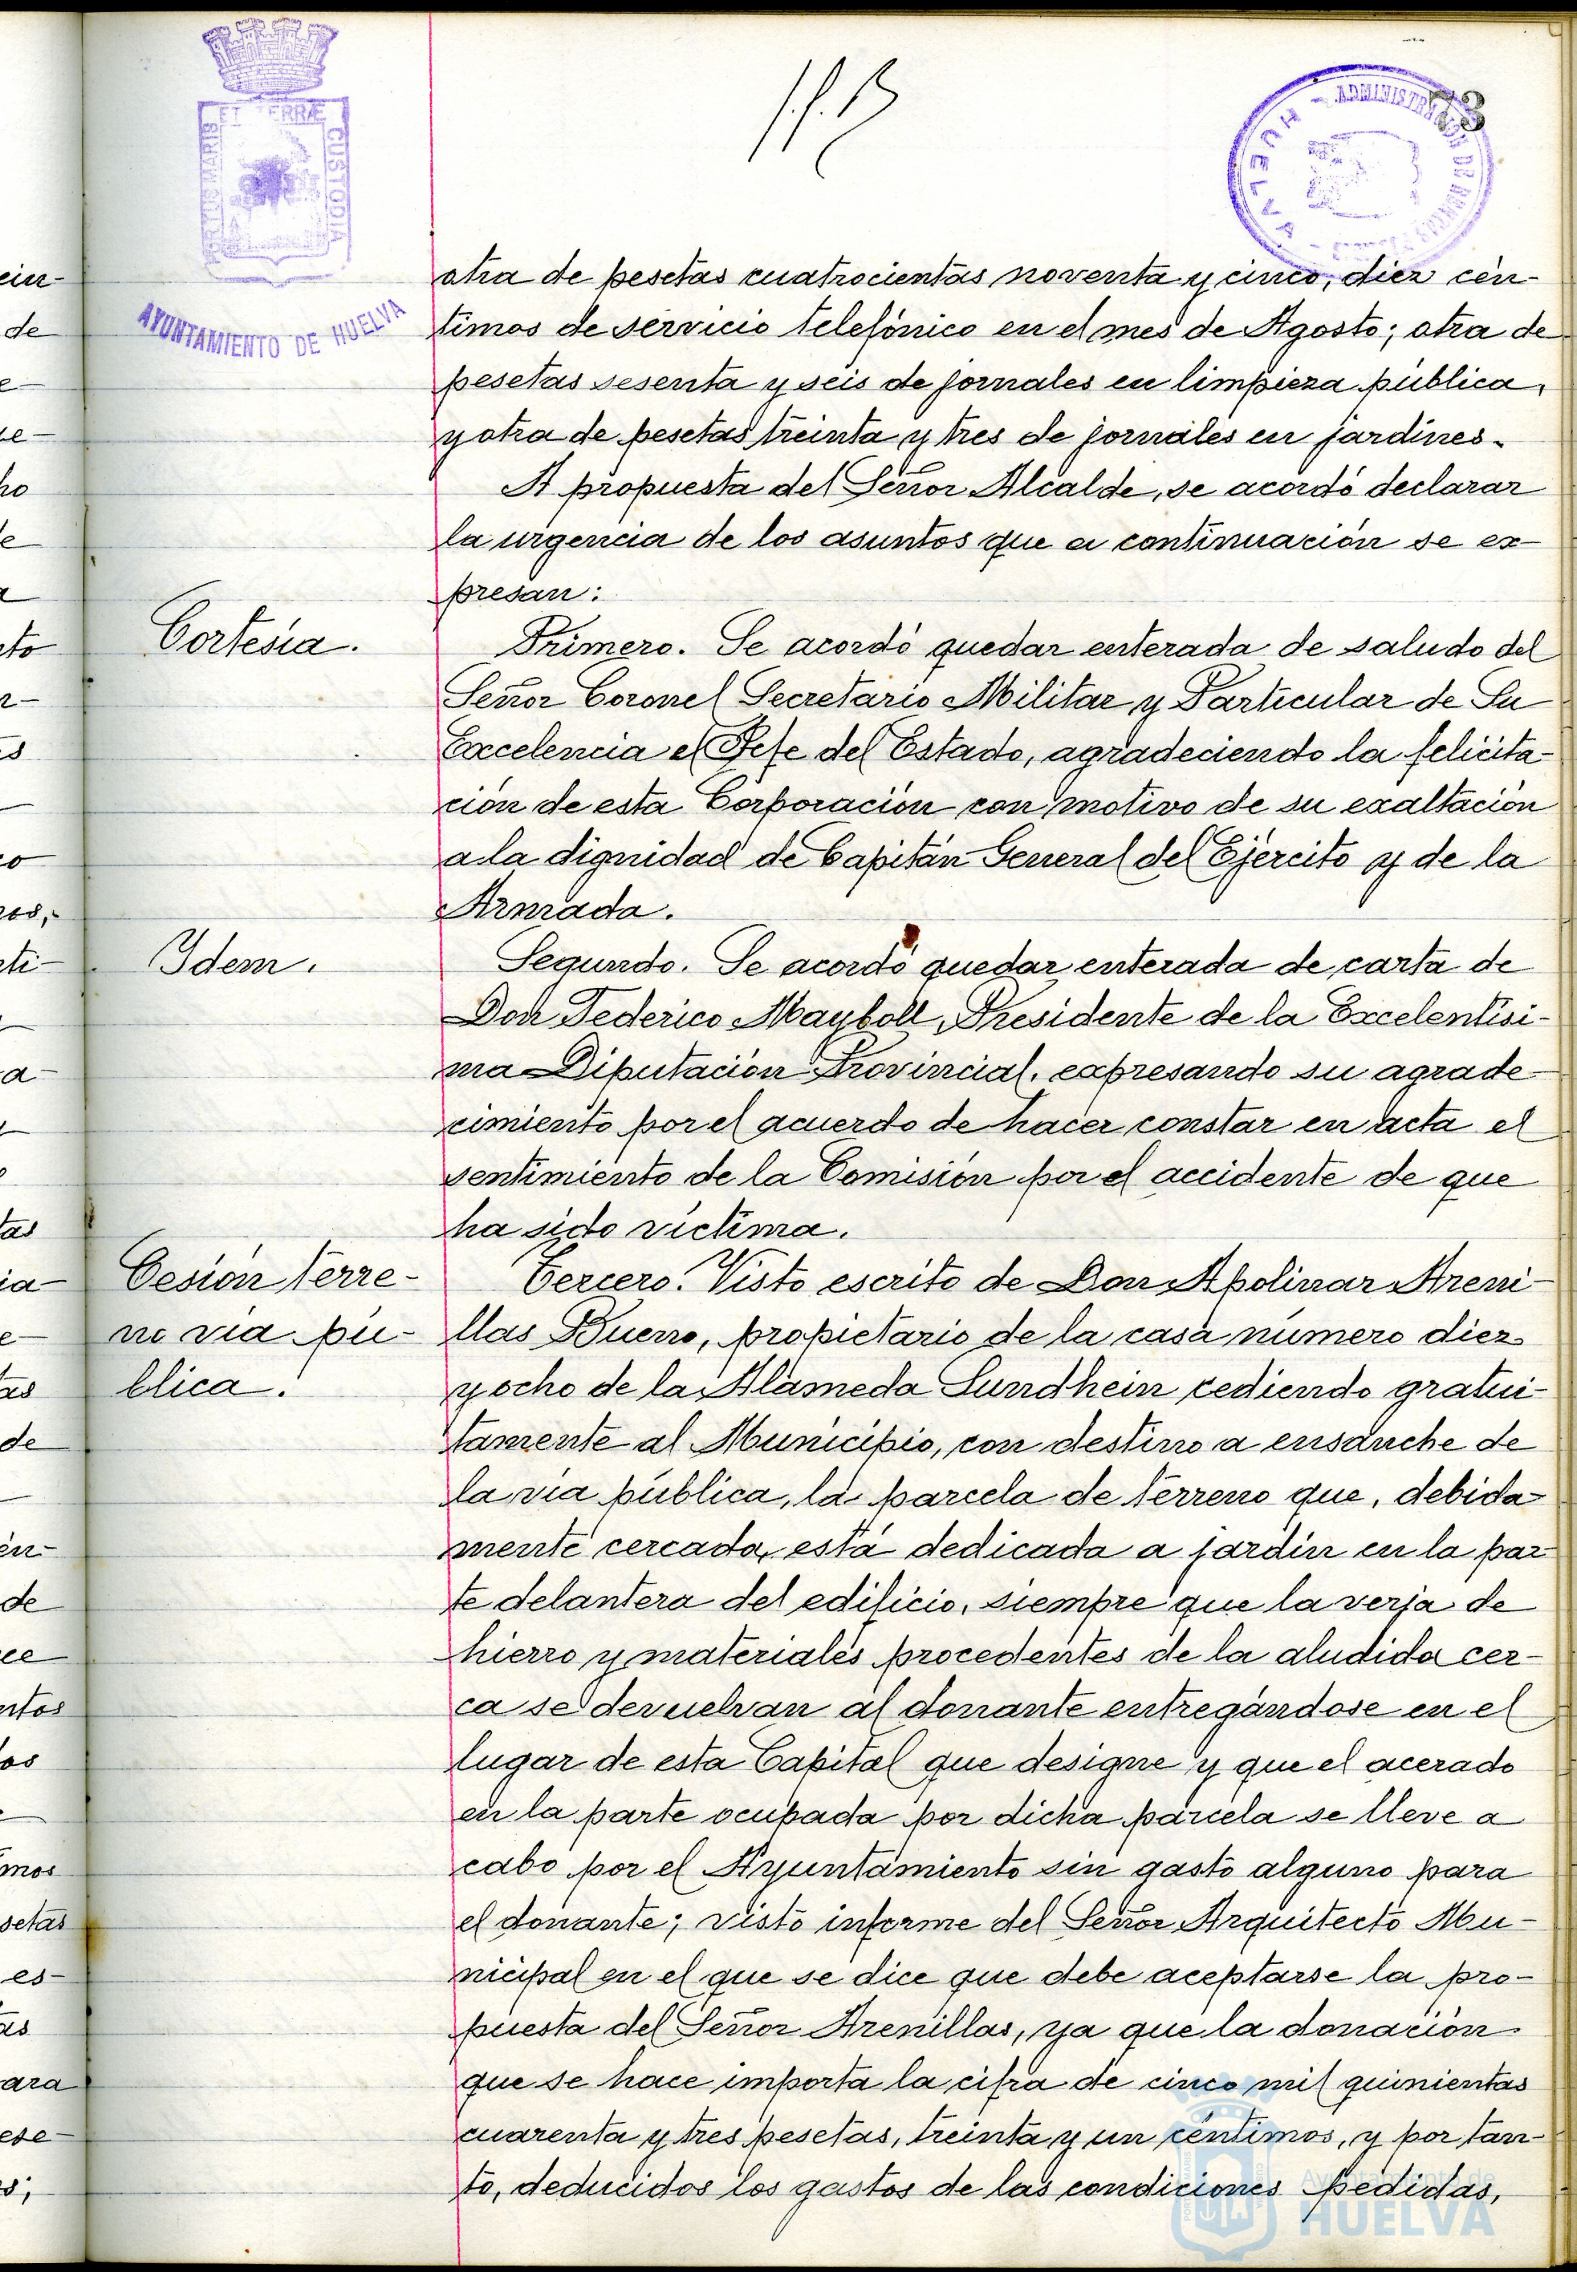 73
ET TERRÆ
CUSTODIA
AYUNTAMIENTO DE HUELVA
HUELVA
otra de pesetas cuatrocientas noventa y cinco, diez cén-
timos de servicio telefónico en el mes de Agosto; otra de
pesetas sesenta y seis de jornales en limpieza pública,
y otra de pesetas treinta y tres de jornales en jardines.
A propuesta del Señor Alcalde, se acordó declarar
la urgencia de los asuntos que a continuación se ex-
presan:
Cortesía.
Primero. Se acordó quedar enterada de saludo del
Señor Coronel Secretario Militar y Particular de Su
Excelencia el Jefe del Estado, agradeciendo la felicita-
ción de esta Corporación con motivo de su exaltación
a la dignidad de Capitán General del Ejército y de la
Armada.
Idem.
Segundo. Se acordó quedar enterada de carta de
Don Federico Mayboll, Presidente de la Excelentísi-
ma Diputación Provincial, expresando su agrade-
cimiento por el acuerdo de hacer constar en acta el
sentimiento de la Comisión por el accidente de que
ha sido víctima.
Cesión terre-
no vía pú-
blica.
Tercero. Visto escrito de Don Apolinar Areni-
llas Bueno, propietario de la casa número diez
y ocho de la Alameda Sundhein cediendo gratui-
tamente al Municipio, con destino a ensanche de
la vía pública, la parcela de terreno que, debida-
mente cercada, está dedicada a jardín en la par-
te delantera del edificio, siempre que la verja de
hierro y materiales procedentes de la aludida cer-
ca se devuelvan al donante entregándose en el
lugar de esta Capital que designe y que el acerado
en la parte ocupada por dicha parcela se lleve a
cabo por el Ayuntamiento sin gasto alguno para
el donante; visto informe del Señor Arquitecto Mu-
nicipal en el que se dice que debe aceptarse la pro-
puesta del Señor Arenillas, ya que la donación
que se hace importa la cifra de cinco mil quinientas
cuarenta y tres pesetas, treinta y un céntimos, y por tan-
to, deducidos los gastos de las condiciones pedidas,
Ayuntamiento de
HUELVA